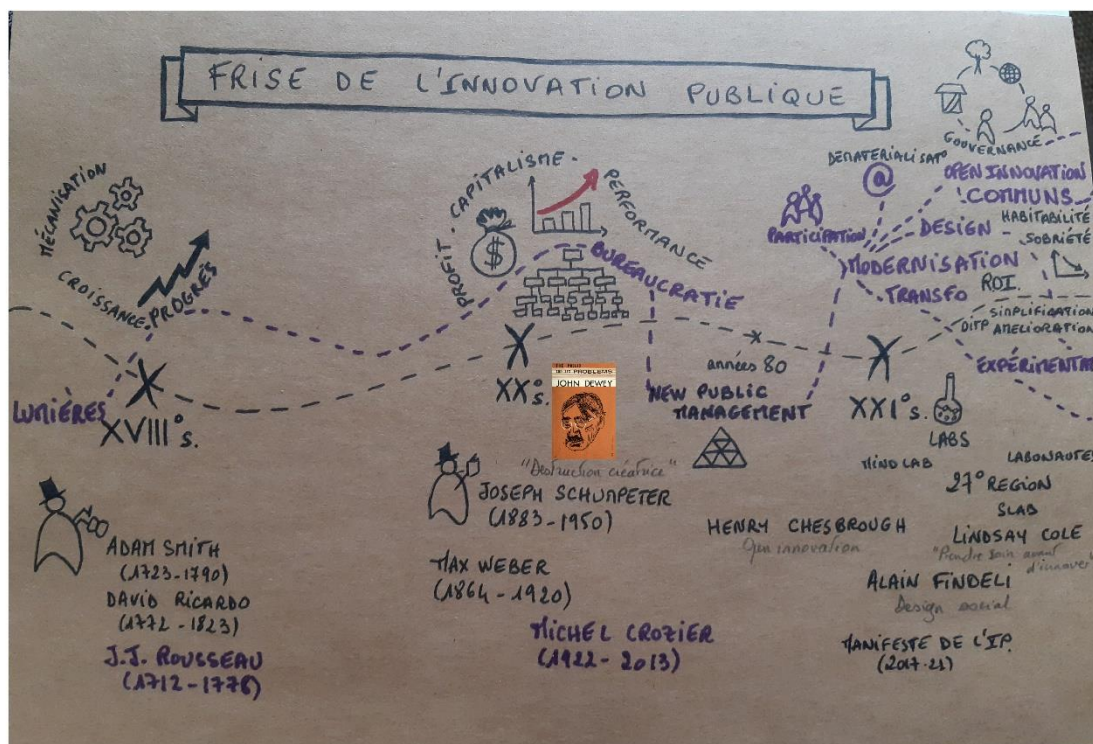 FRISE DE L'INNOVATION PUBLIQUE
MÉCANISATION
CROISSANCE.
PROGRÈS
LUMIÈRES
XVIII°s.
ADAM SMITH
(1723-1790)
DAVID RICARDO
(1772-1823)
J.J. ROUSSEAU
(1712-1778)
PROFIT. CAPITALISME. PERFORMANCE
$
BUREAUCRATIE
XX°s.
PROBLEMS
JOHN DEWEY
"Destruction créatrice"
JOSEPH SCHUMPETER
(1883-1950)
MAX WEBER
(1864-1920)
MICHEL CROZIER
(1922-2013)
années 80
NEW PUBLIC
MANAGEMENT
HENRY CHESBROUGH
Open innovation
GOUVERNANCE
DÉMATÉRIALISAT°
@
PARTICIPATION
OPEN INNOVATION
COMMUNS
HABITABILITÉ
DESIGN
SOBRIÉTÉ
MODERNISATION
ROI.
TRANSFO
SIMPLIFICATION
DITP AMELIORATION
EXPÉRIMENTA
XXI°s.
LABS
MINDLAB
LABONAUTES
27° REGION
SLAB
LINDSAY COLE
"Prendre soin avant
d'innover"
ALAIN FINDELI
Design social
MANIFESTE DE L'IP.
(2017-21)